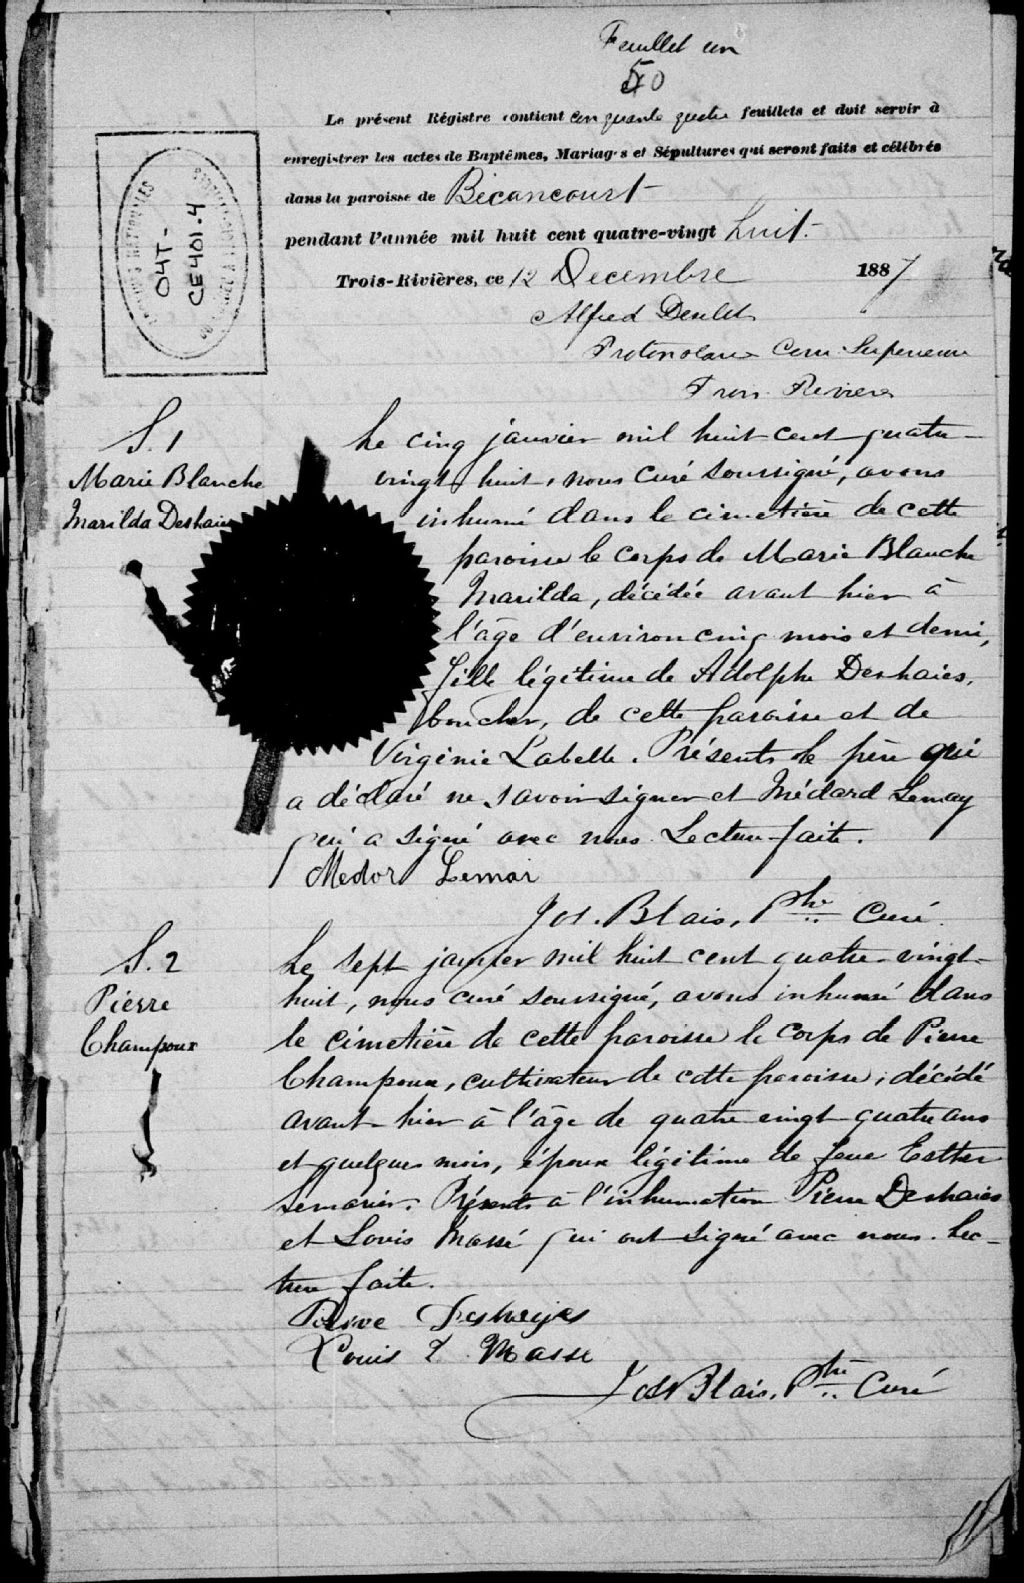 Feuillet un
50
Le présent Régistre contient cinquante quatre feuillets et doit servir à
enregistrer les actes de Baptêmes, Mariages et Sépultures qui seront faits et célébrés
dans la paroisse de Bécancourt
pendant l'année mil huit cent quatre-vingt huit.
Trois-Rivières, ce 12 Decembre 1887
Alfred Desilets
Protonotaire Cour Superieure
Trois Rivieres
ARCHIVES NATIONALES
04T-
CE401-4
S. 1
Marie Blanche
Marilda Deshaies
Le cinq janvier mil huit cent quatre-
vingt huit, nous curé soussigné, avons
inhumé dans le cimetière de cette
paroisse le corps de Marie Blanche
Marilda, décédée avant hier à
l'âge d'environ cinq mois et demi,
fille légitime de Adolphe Deshaies,
boucher, de cette paroisse et de
Virginie Labelle. Présents le père qui
a déclaré ne savoir signer et Médard Lemay
qui a signé avec nous. Lecture faite.
Medor Lemai
Jos. Blais, Ptre Curé
S. 2
Pierre
Champoux
Le sept janvier mil huit cent quatre-vingt-
huit, nous curé soussigné, avons inhumé dans
le cimetière de cette paroisse le corps de Pierre
Champoux, cultivateur de cette paroisse, décédé
avant-hier à l'âge de quatre vingt quatre ans
et quelques mois, époux légitime de feue Esther
Présents à l'inhumation Pierre Deshaies
et Louis Massé qui ont signé avec nous. Lec-
ture faite.
Louis Masse
Jos Blais, Ptre Curé